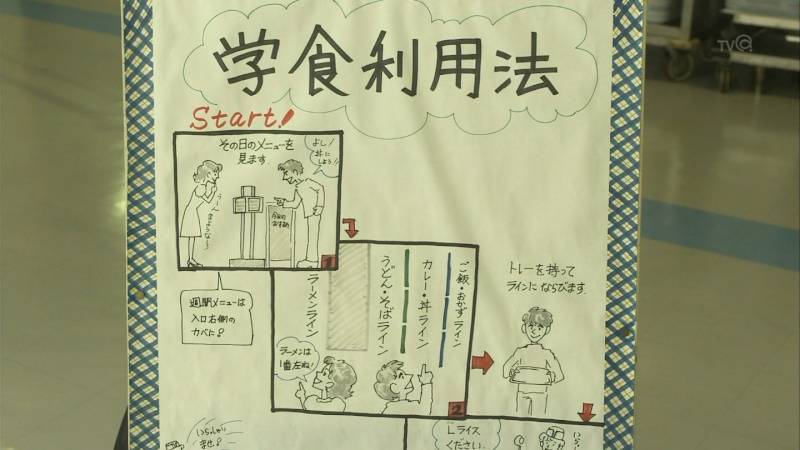 TVQ
学食利用法
Start!
その日のメニューを
見ます.
よし!
丼に
しよう!!
うーん
まような〜
今日の
おすすめ
1
週間メニューは
入口右側の
カベに!
ラーメンライン
うどん・そばライン
カレー・丼ライン
ご飯・おかずライン
ラーメンは
1番左ね!
2
トレーを持って
ラインにならびます.
いらっしゃい
ませ!
Lライス
ください.